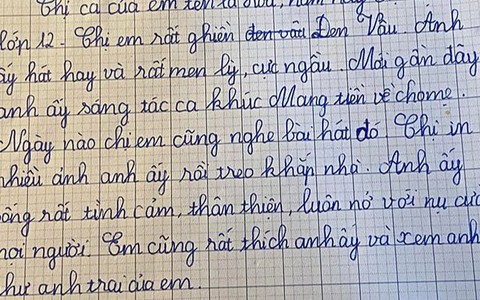 Chị cả của em tên là
lớp 12. Chị em rất ghiền đen vâu Đen Vâu. Anh
ấy hát hay và rất men lỳ, cực ngầu. Mới gần đây
anh ấy sáng tác ca khúc Mang tiền về cho mẹ.
Ngày nào chị em cũng nghe bài hát đó. Chị in
nhiều ảnh anh ấy rồi treo khắp nhà. Anh ấy
sống rất tình cảm, thân thiên, luôn nở với nụ cười
mọi người. Em cũng rất thích anh ấy và xem anh
như anh trai của em.